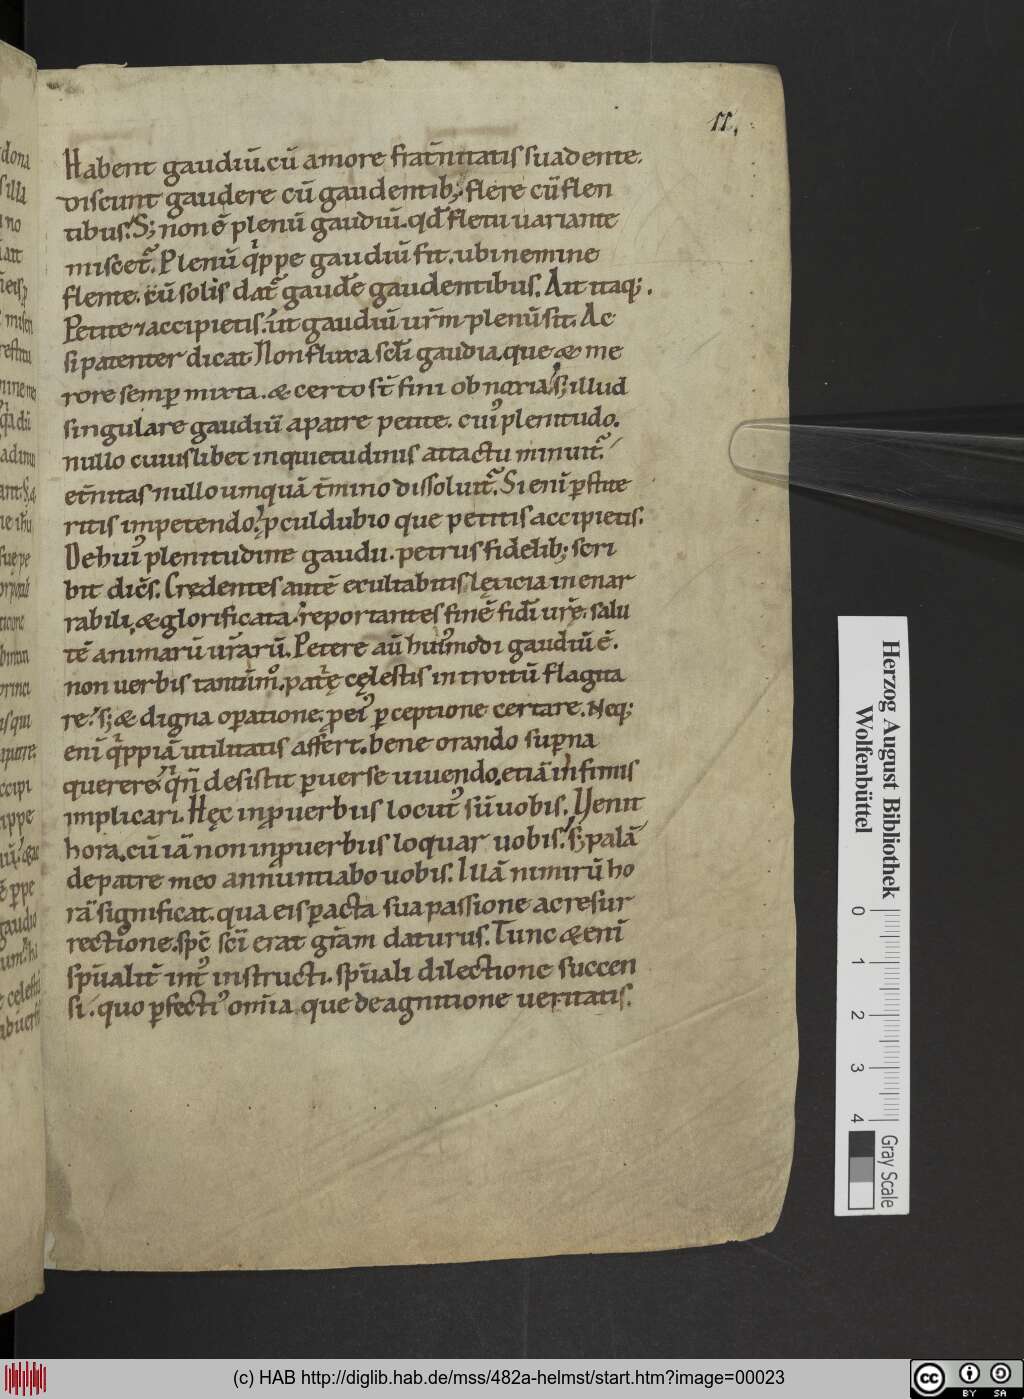 11.
Habent gaudiū. cū amore frat̄nitatis suadente.
discunt gaudere cū gaudentib; flere cū flen
tibus. S; non ē plenū gaudiū. qd̄ fletu uariante
miscet᷑. Plenū qͥppe gaudiū fit. ubi nemine
flente. cū solis dat᷑ gaudē gaudentibus. Ait itaq;.
Petite & accipietis. ut gaudiū ur̄m plenū sit. Ac
si patenter dicat. Non fluxa sc̄li gaudia. que & me
rore semꝑ mixta. & certo st̄ fini obnoxia. s; illud
singulare gaudiū a patre petite. cuiꝰ plenitudo.
nullo cuiuslibet inquietudinis attactu minuit᷑.
et̄nitas nullo umquā t̄mino dissoluit᷑. Si eni ꝑstite
ritis impetendo. ꝓculdubio que petitis accipietis.
De huiꝰ plenitudine gaudii. petrus fidelib; scri
bit dicēs. Credentes autē exultabitis lęticia inenar
rabili, & glorificata. reportantes finē fidei ur̄ę. salu
tē animarū ur̄arū. Petere aū huiꝰmodi gaudiū ē.
non uerbis tantūmº. patͥę cęlestis introitū flagita
re. s; & digna oꝑatione. ꝓ eiꝰ ꝑceptione certare. Neq;
eni qͥppiā utilitatis affert. bene orando suꝑna
querere. qͥ n̄ desistit ꝑuerse uiuendo. etiā infimis
implicari. Hęc in ꝓuerbiis locutꝰ sū uobis. Uenit
hora. cū iā non in ꝓuerbiis loquar uobis. s; palā
de patre meo annuntiabo uobis. Illā nimirū ho
rā significat. qua eis ꝑacta sua passione ac resur
rectione. spc̄ sc̄i erat gr̄am daturus. Tunc & eni
sp̄ualit᷑ intꝰ instructi. sp̄uali dilectione succen
si. quo ꝑfectiꝰ om̄ia. que de agnitione ueritatis.
Herzog August Bibliothek
Wolfenbüttel
0 1 2 3 4
Gray Scale
(c) HAB http://diglib.hab.de/mss/482a-helmst/start.htm?image=00023
cc BY SA